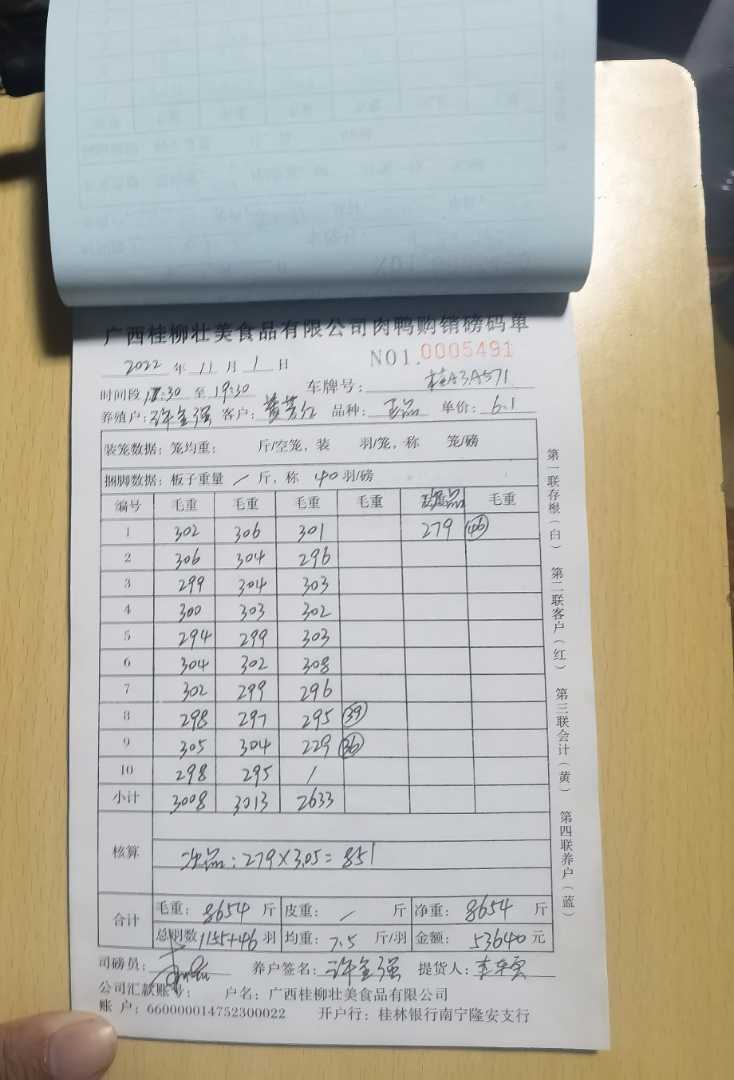 广西桂柳壮美食品有限公司肉鸭购销磅码单
2022 年 11 月 1 日 NO1.0005491
时间段 18:30 至 19:30 车牌号: 桂A3A571
养殖户: 许金强 客户: 黄芳红 品种: 正品 单价: 6.1
装笼数据: 笼均重: 斤/空笼, 装 羽/笼, 称 笼/磅
捆脚数据: 板子重量 / 斤, 称 40 羽/磅
编号 毛重 毛重 毛重 毛重 次品 毛重
1 302 306 301 279 (46)
2 306 304 296
3 299 304 303
4 300 303 302
5 294 299 303
6 304 302 308
7 302 299 296
8 298 297 295 (39)
9 305 304 229 (36)
10 298 295 /
小计 3008 3013 2633
核算 次品: 279×3.05=851
合计 毛重: 8654 斤 皮重: / 斤 净重: 8654 斤
总羽数 1155+46 羽 均重: 7.5 斤/羽 金额: 53640 元
司磅员: 养户签名: 许金强 提货人:
公司汇款账号: 户名: 广西桂柳壮美食品有限公司
账 户: 660000014752300022 开户行: 桂林银行南宁隆安支行
第一联存根(白) 第二联客户(红) 第三联会计(黄) 第四联养户(蓝)